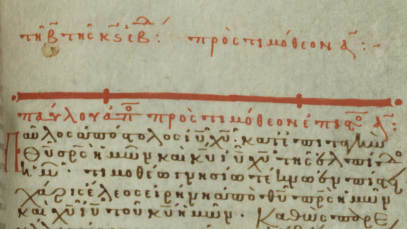 τῇ β τῆς κς ἑβδ: πρὸς τιμόθεον α:
παύλου ἀπο πρὸς τιμόθεον ἐπιστο α:
Παῦλος ἀπόστολος ιυ χυ κατ ἐπιταγὴν
θυ σρς ἡμῶν καὶ κυ ιυ χυ τῆς ἐλπίδο
ἡμ τιμοθέω γνησίω τέκνω ἐν πίστει
χάρις ἔλεος εἰρήνη ἀπὸ θυ πρς ἡμῶν
καὶ χυ ιυ τοῦ κυ ἡμῶν. Καθὼς παρε